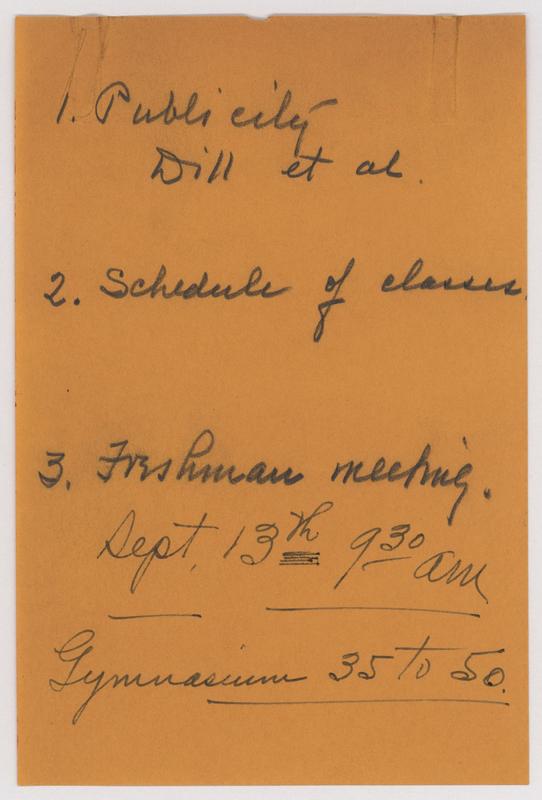 1. Publicity
Dill et al.
2. Schedule of classes.
3. Freshman meeting.
Sept. 13th 9 30 am
Gymnasium 35 to 50.